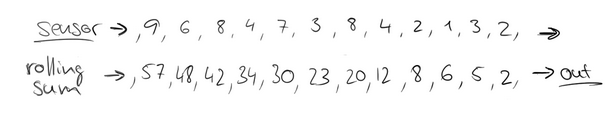 sensor → , 9, 6, 8, 4, 7, 3, 8, 4, 2, 1, 3, 2, →
rolling sum → , 57, 48, 42, 34, 30, 23, 20, 12, 8, 6, 5, 2, → out